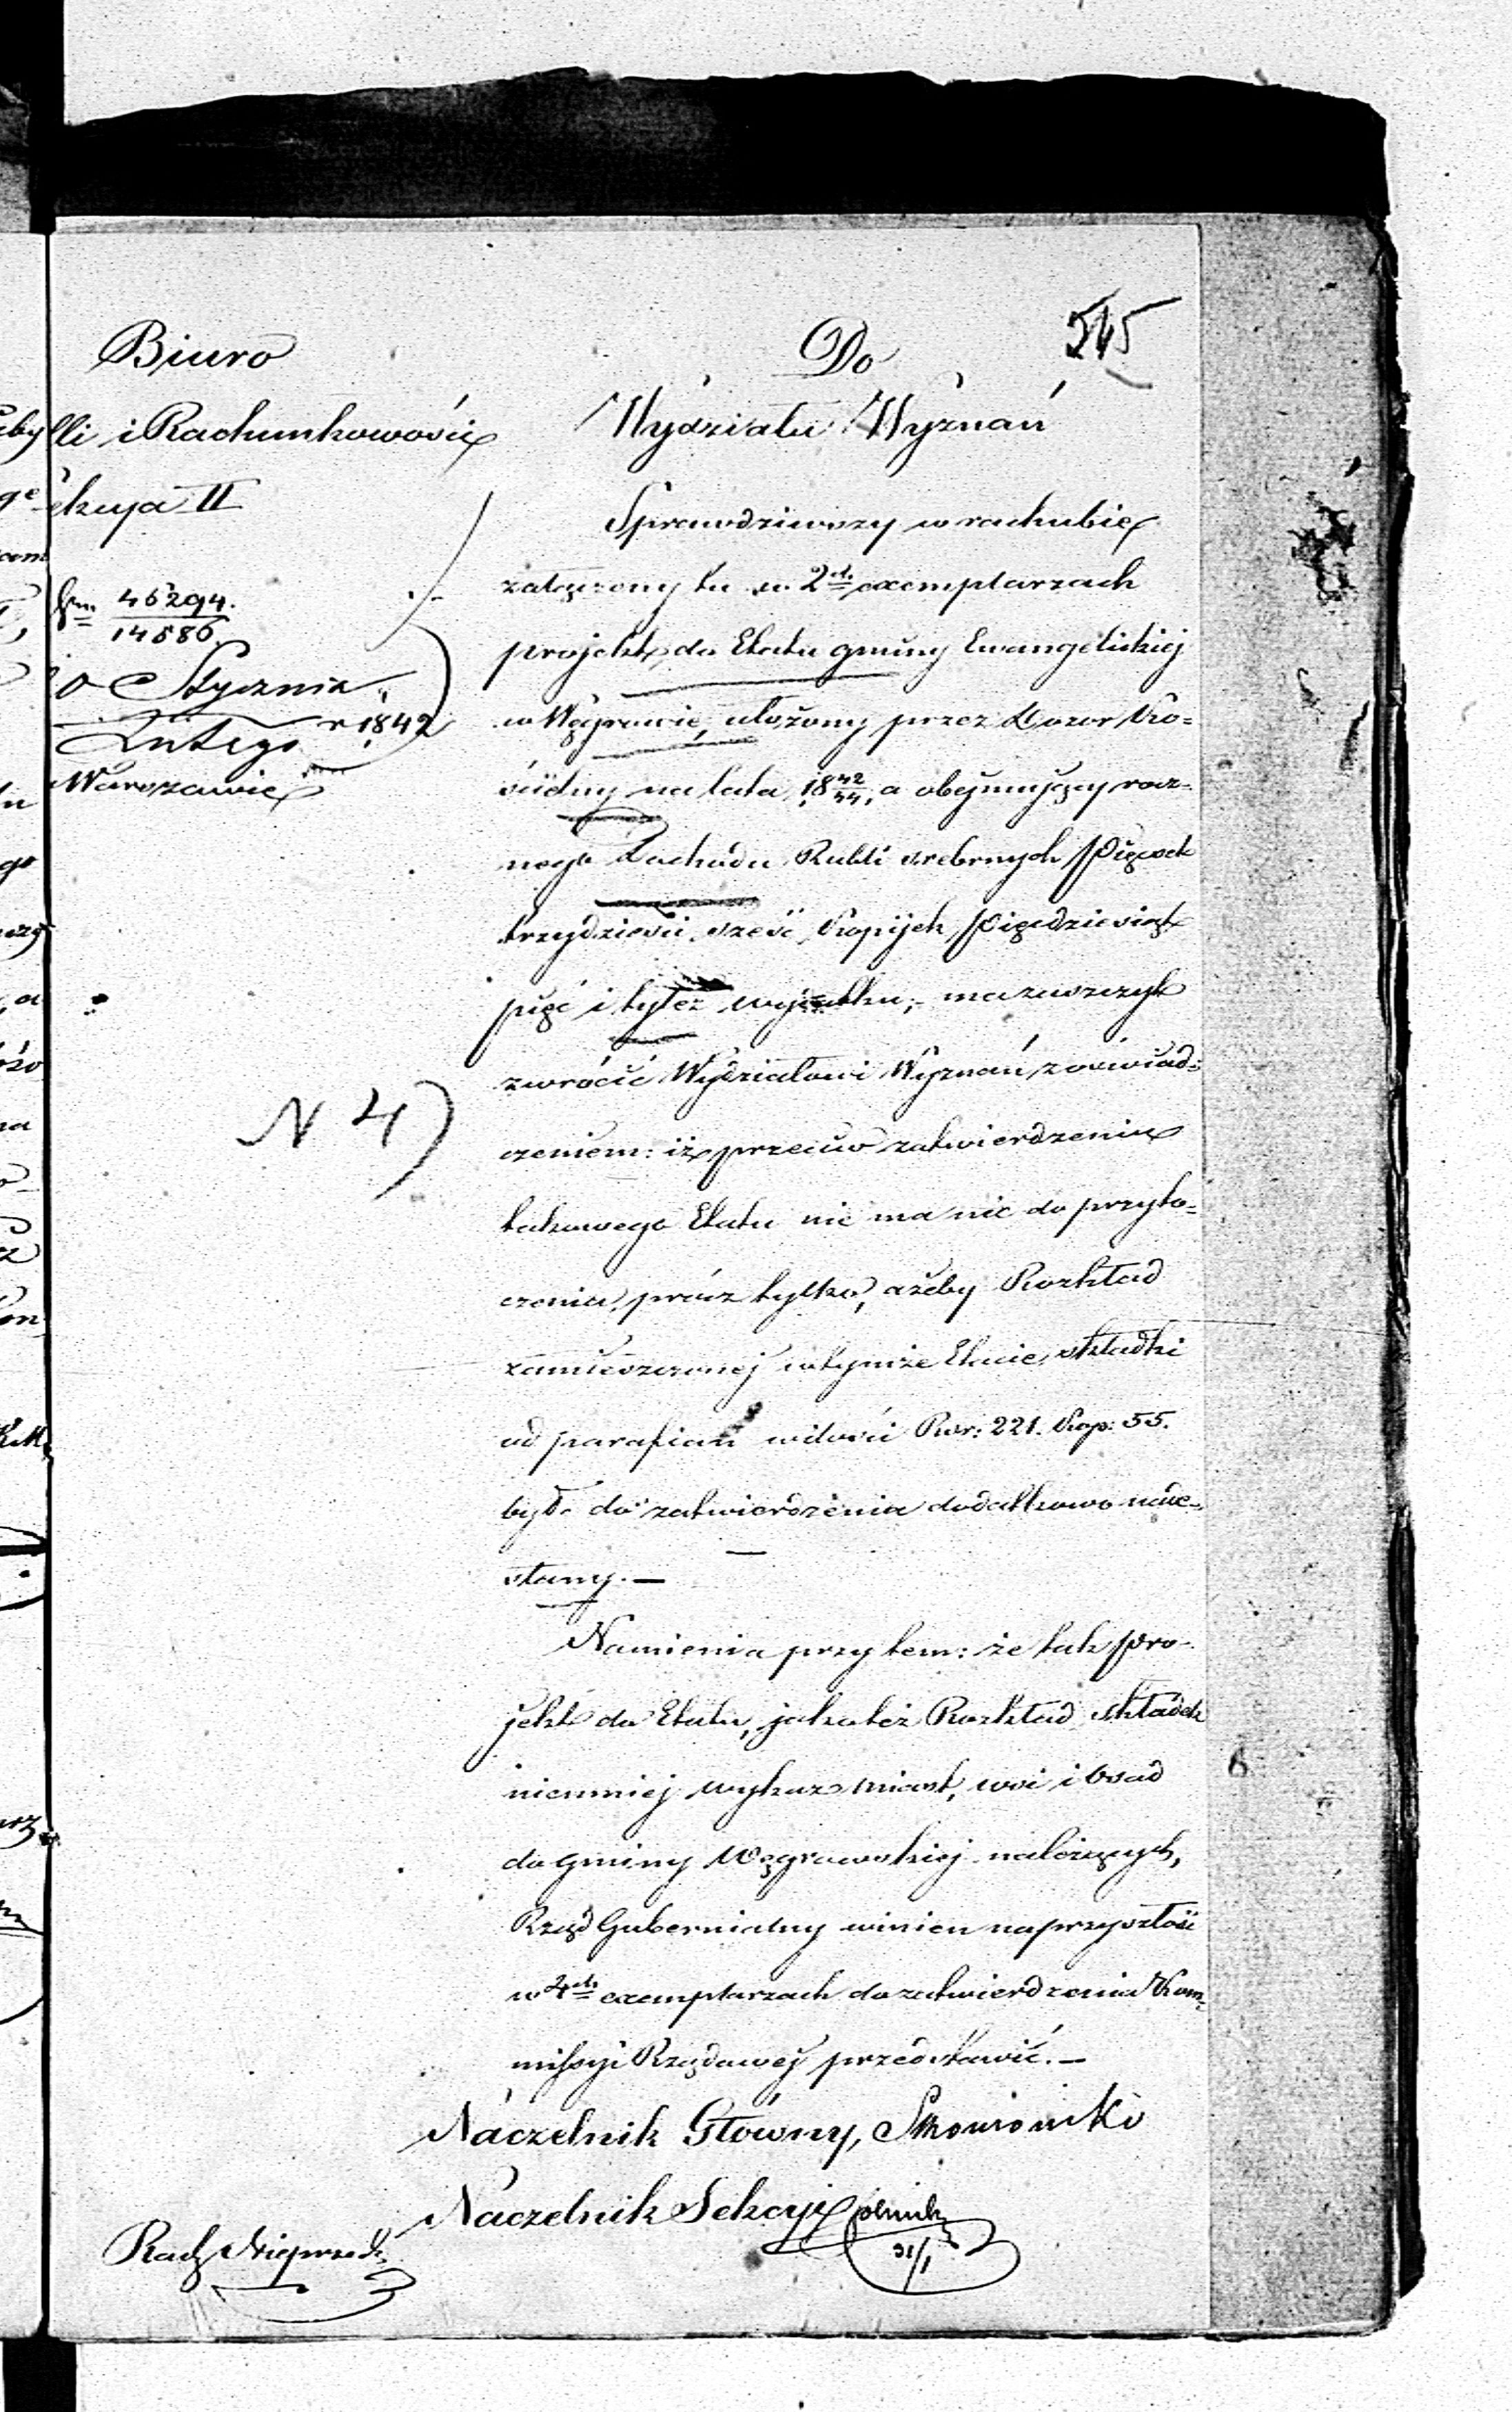 545
Biuro
lli i Rachunkowości
ekcya II
46294.
14586.
Stycznia
Lutego r 1842
Warszawie
N 4)
Do
Wydziału Wyznań
Sprawdziwszy w rachubie
załączony tu w 2ch exemplarzach
projekt do Etatu gminy Ewangelickiej
w Węgrowie, ułożony przez Dozor Ko=
ścielny na lata 1842/44, a obejmujący rocz=
nego Dochodu Rubli srebrnych Pięćset
trzydzieści sześć, Kopijek Pięćdziesiąt
pięć i tyleż wydatku; ma zaszczyt
zwrócić Wydziałowi Wyznań z oświad=
czeniem: iż przeciw zatwierdzeniu
takowego Etatu nie ma nic do przyto=
czenia, prócz tylko, ażeby Rozkład
zamieszczonej w tymże Etacie składki
od parafian w ilości Rsr: 221. Kop: 55.
był do zatwierdzenia dodatkowo nade=
słany.—
Namienia przytem: że tak pro-
jekt do Etatu, jako też Rozkład składek
niemniej wykaz miast, wsi i osad
do gminy Węgrowskiej należących,
Rząd Gubernialny winien na przyszłość
w 4ch exemplarzach do zatwierdzenia Kom=
missyi Rządowej przedstawić.—
Naczelnik Główny,
Naczelnik Sekcyi
31/1
Rach